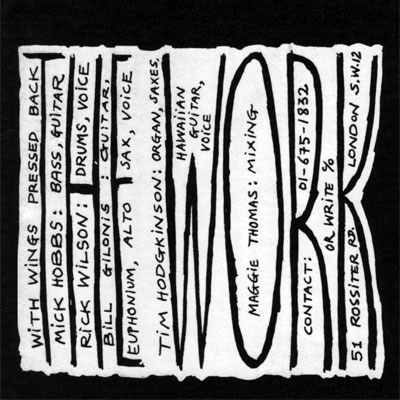 THE WORK
WiTH WiNGS PRESSED BACK
MiCK HOBBS: BASS, GUiTAR
RiCK WiLSON: DRUMS, VOiCE
BiLL GiLONiS: GUiTAR,
EUPHONiUM, ALTO SAX, VOiCE
TiM HODGKiNSON: ORGAN, SAXES,
HAWAiiAN
GUiTAR,
VOiCE
MAGGiE THOMAS: MiXiNG
CONTACT: 01-675-1832
OR WRiTE %
51 ROSSiTER RD. LONDON S.W.12